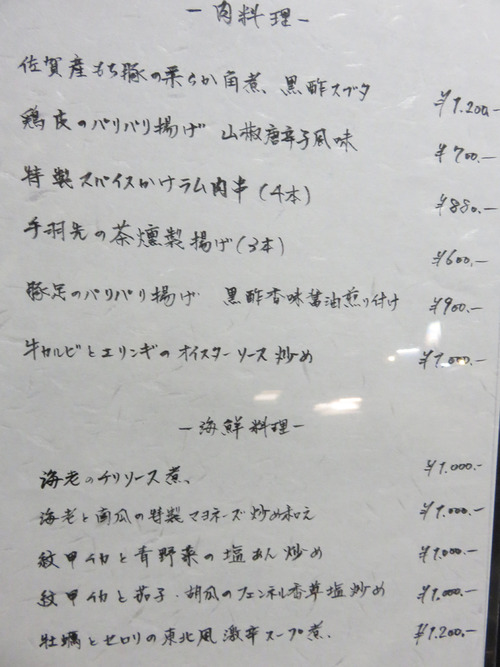 －肉料理－
佐賀産もち豚の柔らか角煮、黒酢スブタ ¥1.200.-
鶏皮のパリパリ揚げ 山椒唐辛子風味 ¥700.-
特製スパイスかけラム肉串(4本) ¥880.-
手羽先の茶燻製揚げ(3本) ¥600.-
豚足のパリパリ揚げ 黒酢香味醤油煎り付け ¥900.-
牛カルビとエリンギのオイスターソース炒め ¥1.000.-
－海鮮料理－
海老のチリソース煮、 ¥1.000.-
海老と南瓜の特製マヨネーズ炒め和え ¥1.000.-
紋甲イカと青野菜の塩あん炒め ¥1.000.-
紋甲イカと茄子・胡瓜のフェンネル香草塩炒め ¥1.000.-
牡蠣とセロリの東北風激辛スープ煮. ¥1.200.-